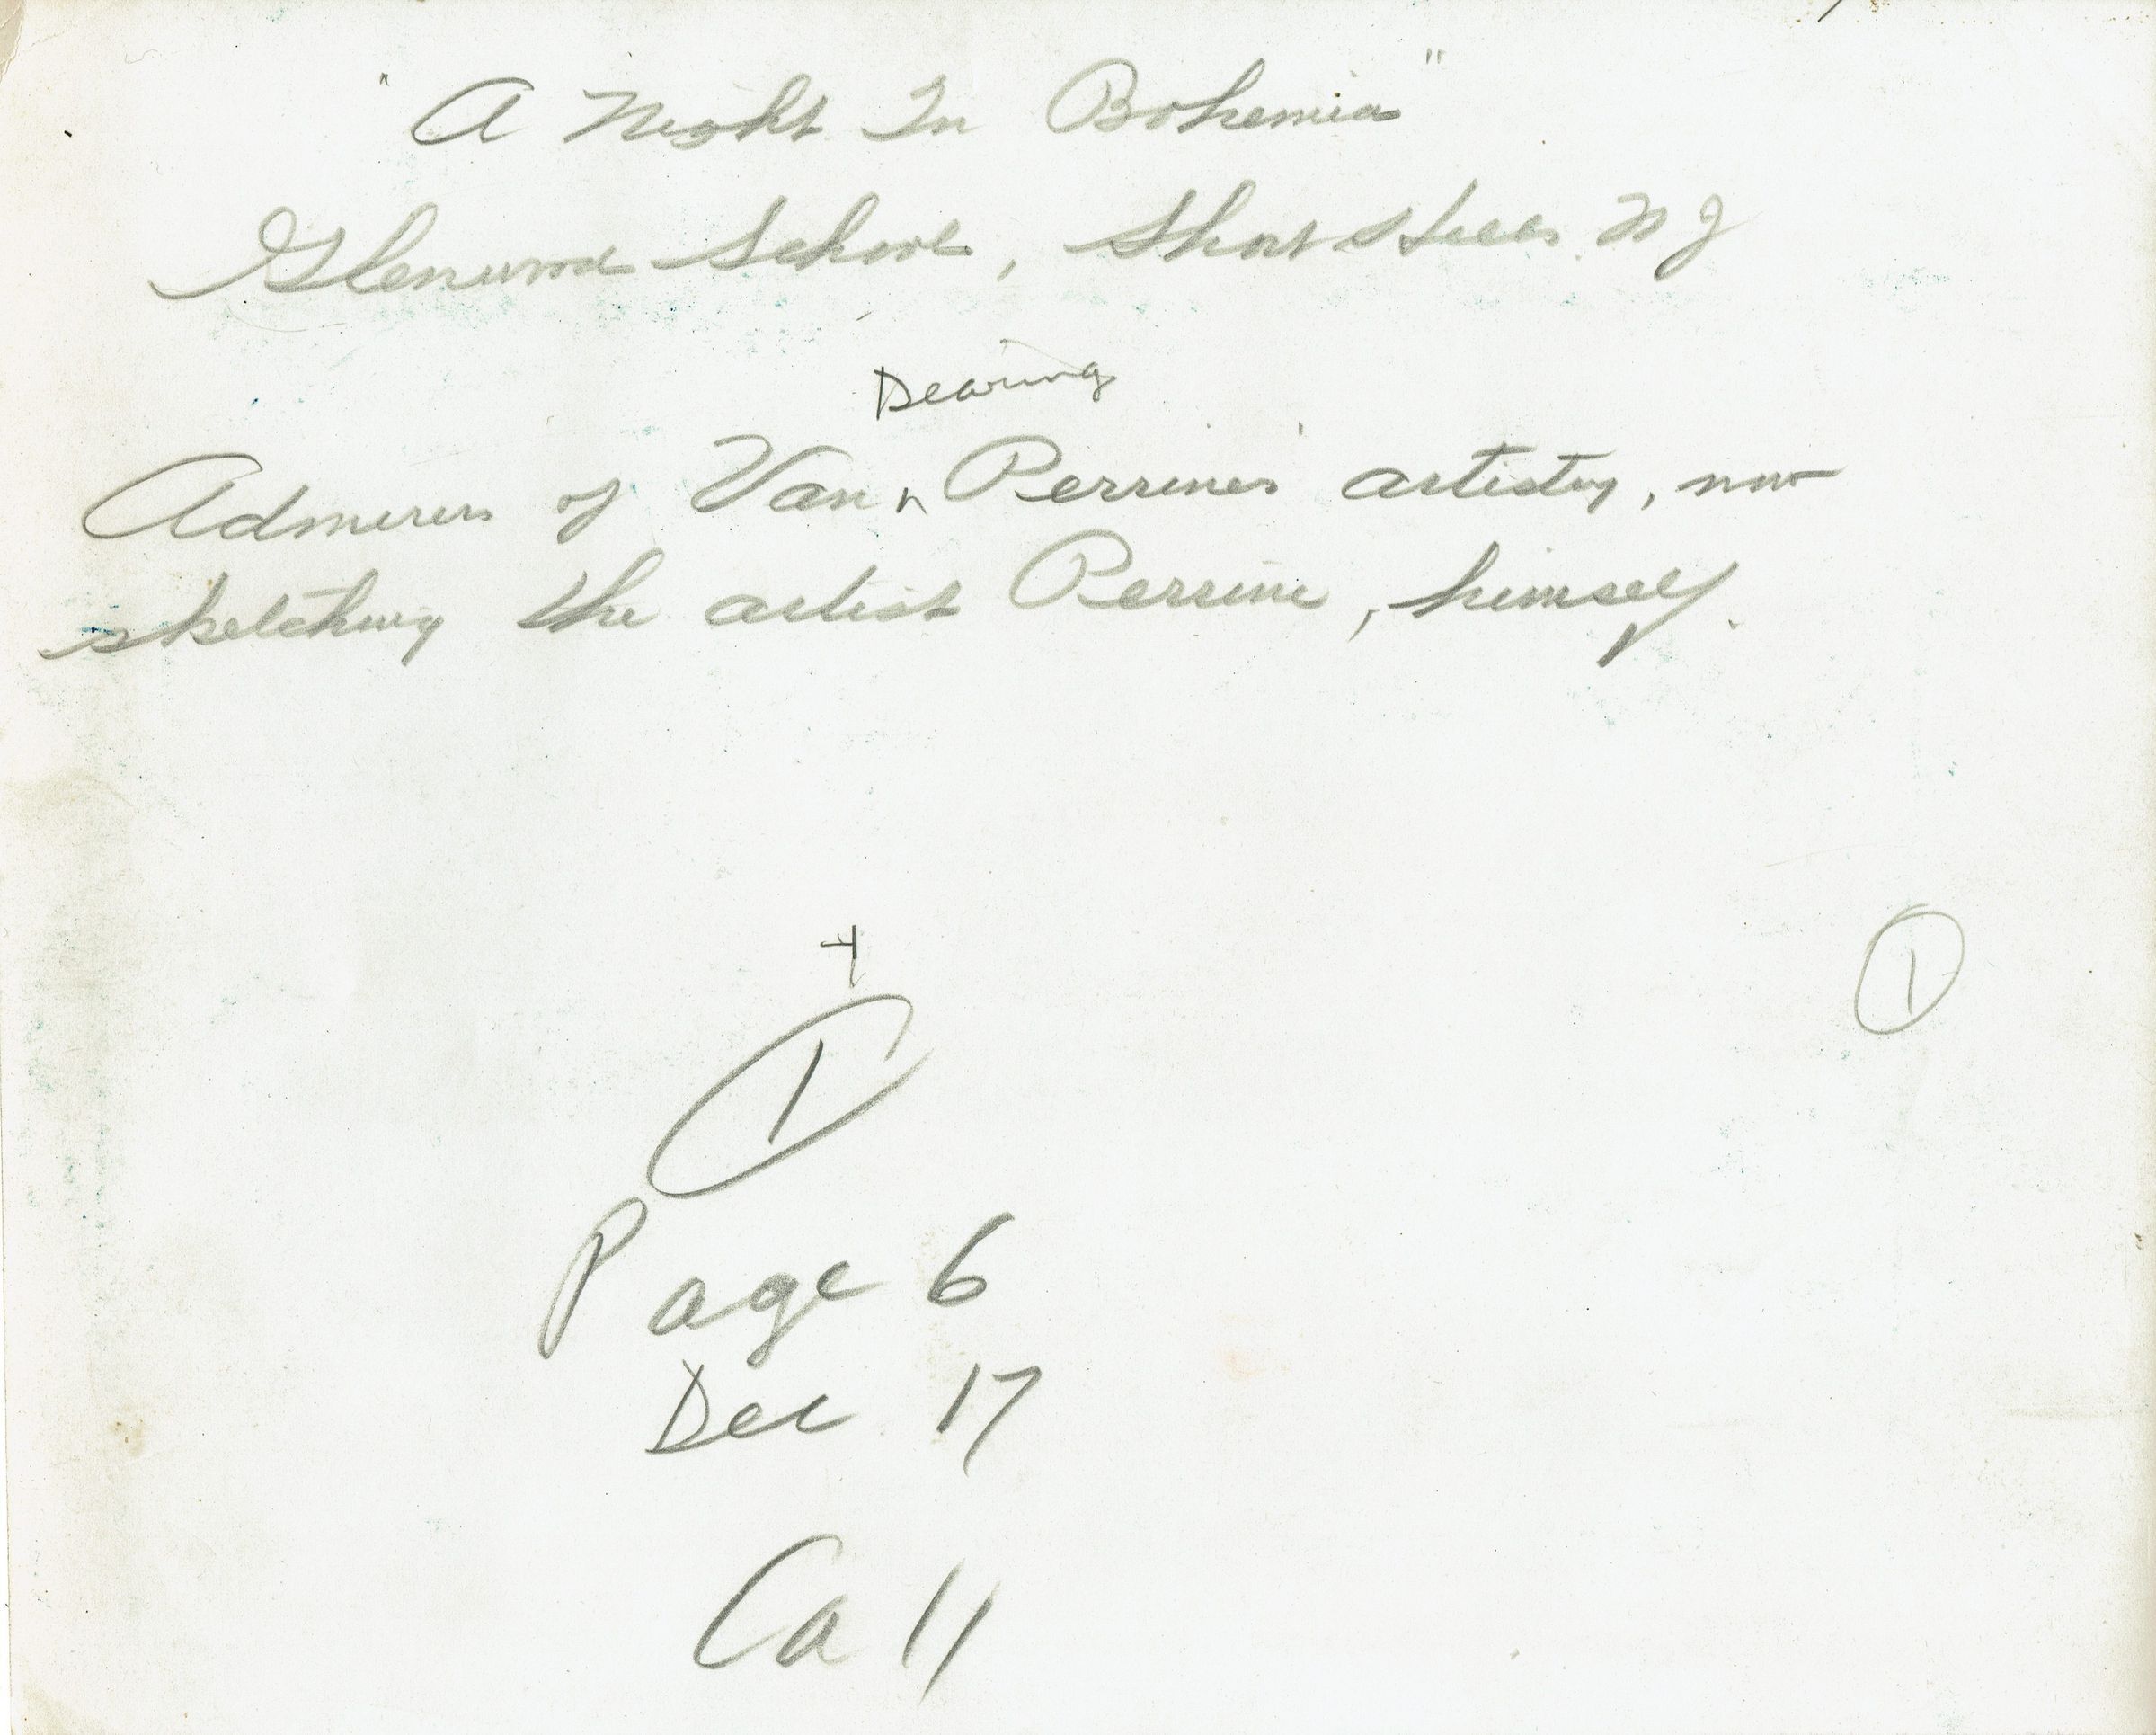 "A Night In Bohemia"
Glenwood School, Short Hills N J
Dearing
Admirers of Van ^ Perrine's artistry, now
sketching the artist Perrine, himself.
1
1
Page 6
Dec 17
Call